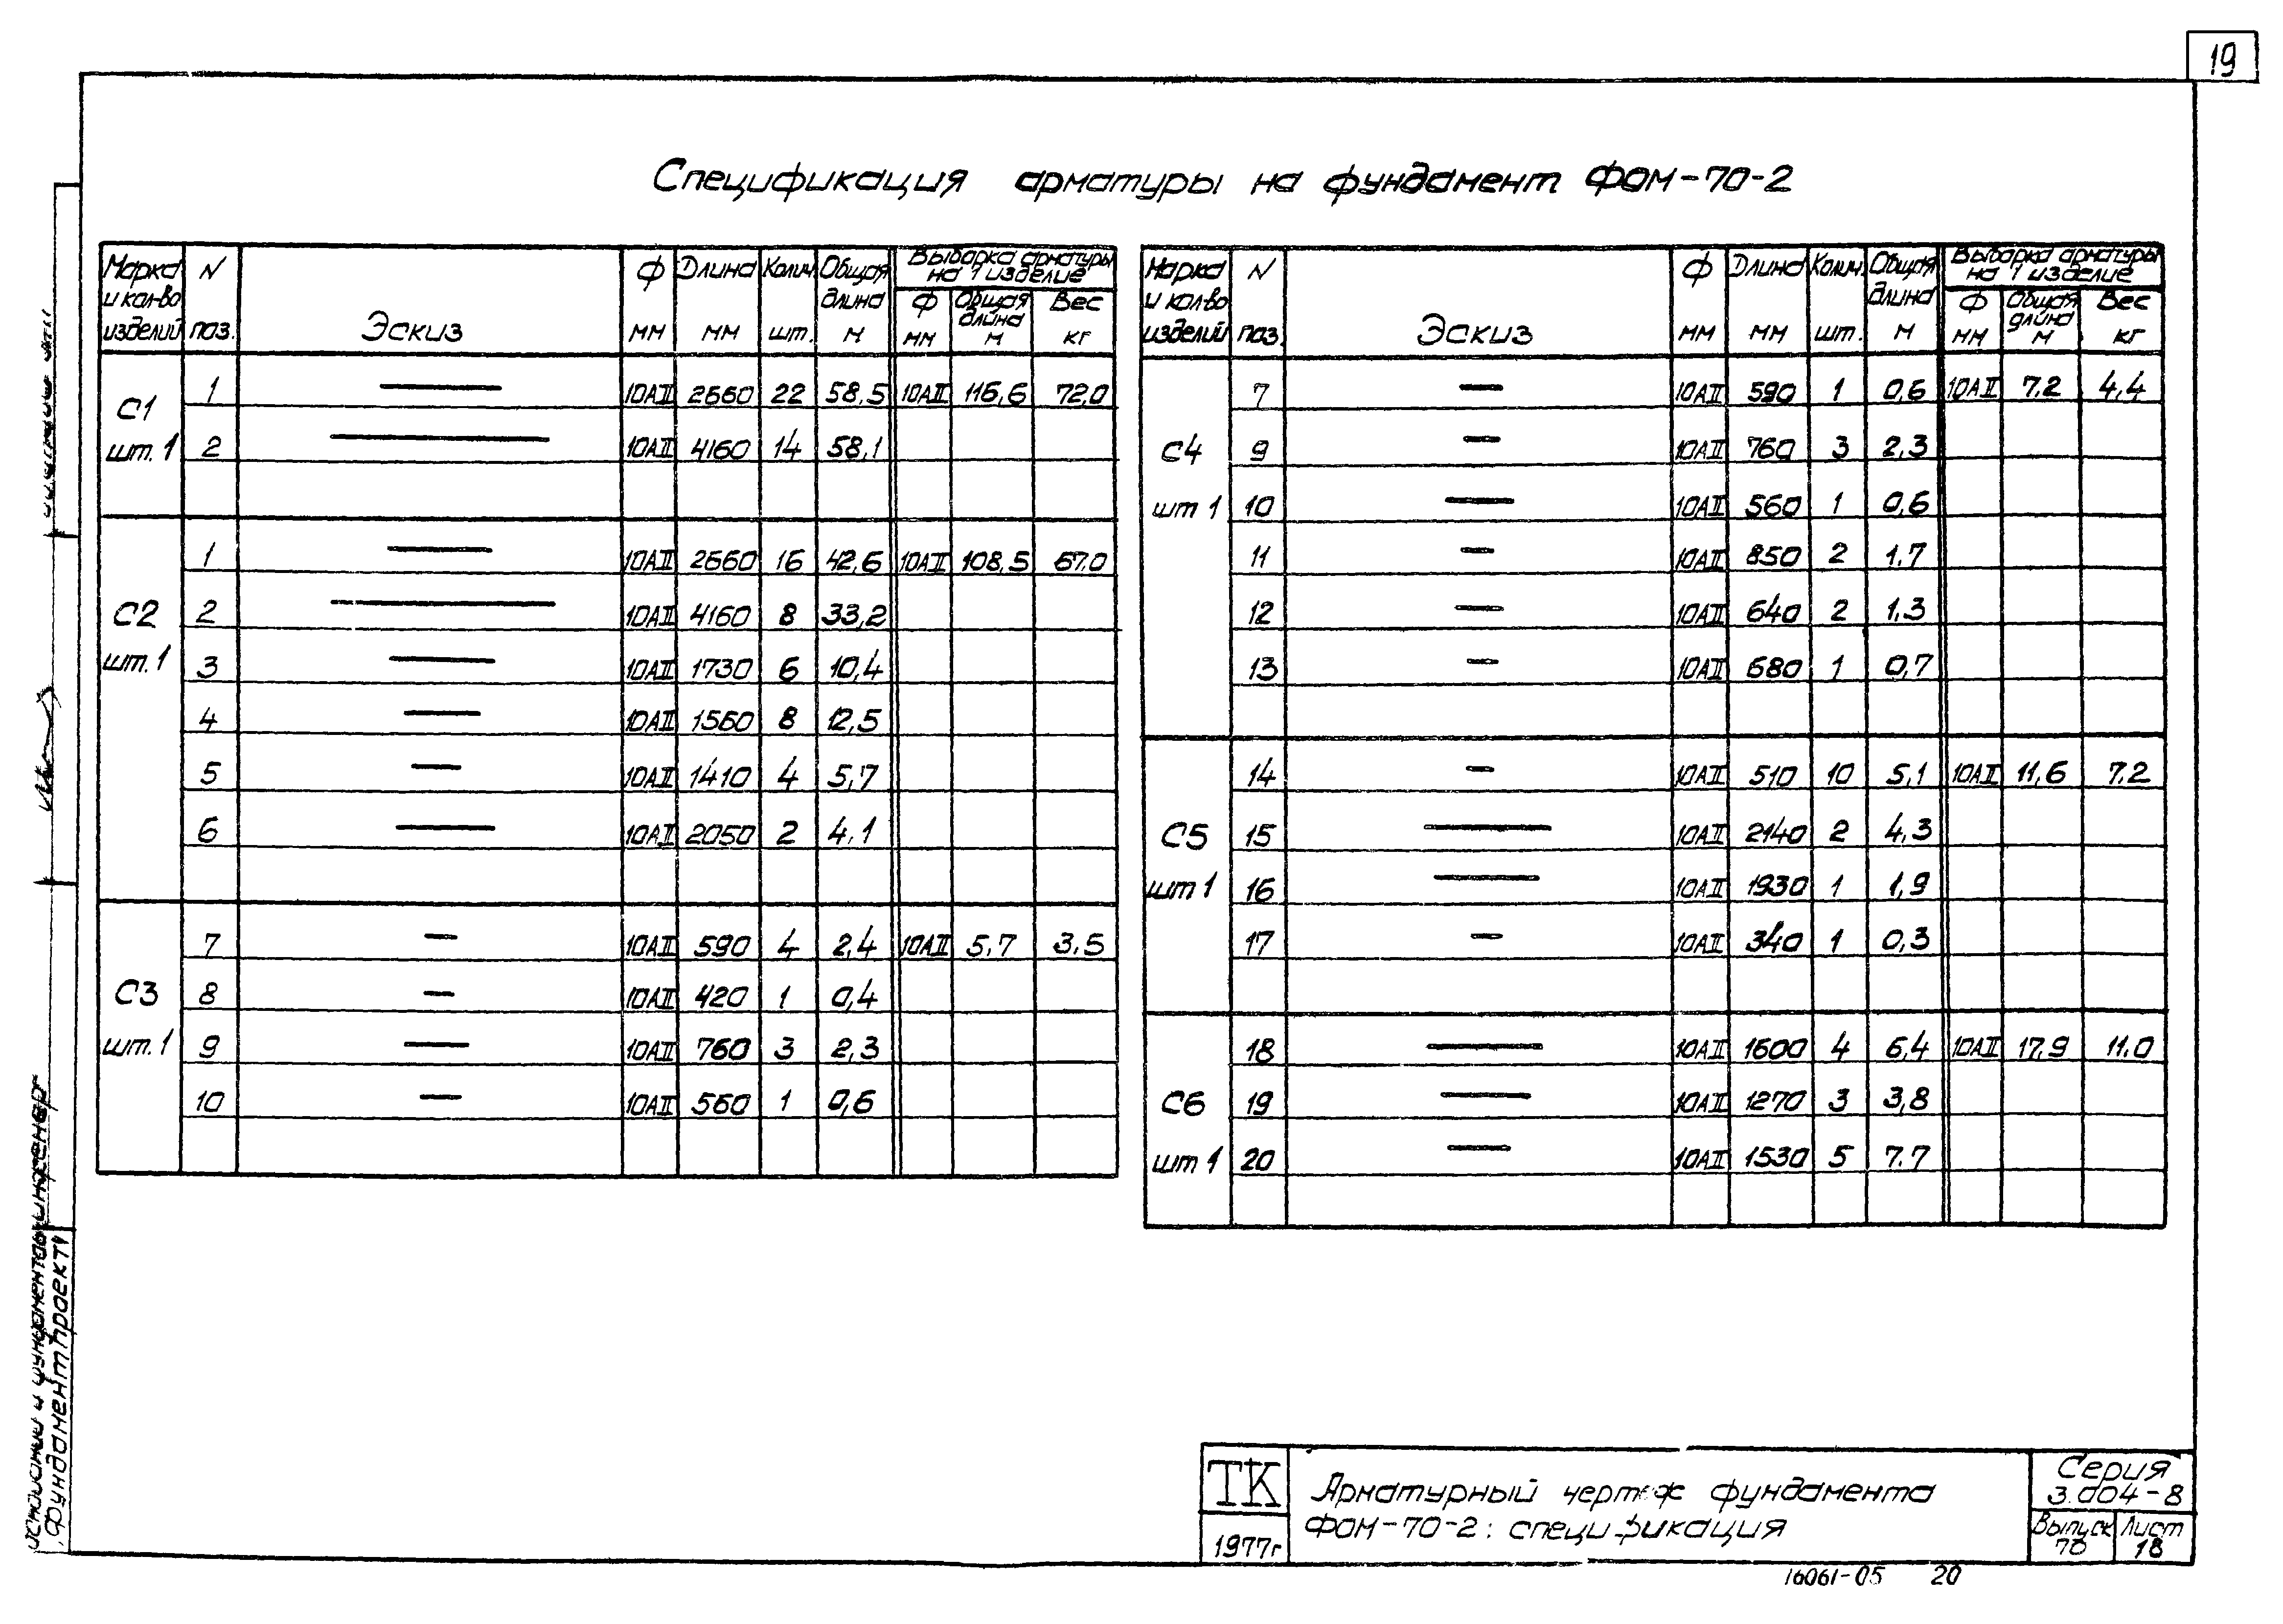 19
Спецификация арматуры на фундамент ФОМ-70-2
Марка и кол-во изделий | N поз. | Эскиз | Ф мм | Длина мм | Колич. шт. | Общая длина м | Выборка арматуры на 1 изделие: Ф мм | Общая длина м | Вес кг
С1 шт. 1
1 10АII 2660 22 58,5 10АII 116,6 72.0
2 10АII 4160 14 58,1
С2 шт. 1
1 10АII 2660 16 42,6 10АII 108,5 67.0
2 10АII 4160 8 33,2
3 10АII 1730 6 10,4
4 10АII 1560 8 12,5
5 10АII 1410 4 5,7
6 10АII 2050 2 4,1
С3 шт. 1
7 10АII 590 4 2,4 10АII 5,7 3,5
8 10АII 420 1 0,4
9 10АII 760 3 2,3
10 10АII 560 1 0,6
Марка и кол-во изделий | N поз. | Эскиз | Ф мм | Длина мм | Колич. шт. | Общая длина м | Выборка арматуры на 1 изделие: Ф мм | Общая длина м | Вес кг
С4 шт 1
7 10АII 590 1 0,6 10АII 7.2 4,4
9 10АII 760 3 2,3
10 10АII 560 1 0,6
11 10АII 850 2 1,7
12 10АII 640 2 1,3
13 10АII 680 1 0,7
С5 шт 1
14 10АII 510 10 5,1 10АII 11,6 7.2
15 10АII 2140 2 4,3
16 10АII 1930 1 1,9
17 10АII 340 1 0,3
С6 шт 1
18 10АII 1600 4 6,4 10АII 17,9 11.0
19 10АII 1270 3 3,8
20 10АII 1530 5 7.7
ТК
1977г
Арматурный чертеж фундамента
ФОМ-70-2: спецификация
Серия
3.004-8
Выпуск 70
Лист 18
16061-05 20
инженер
Фундаментпроект